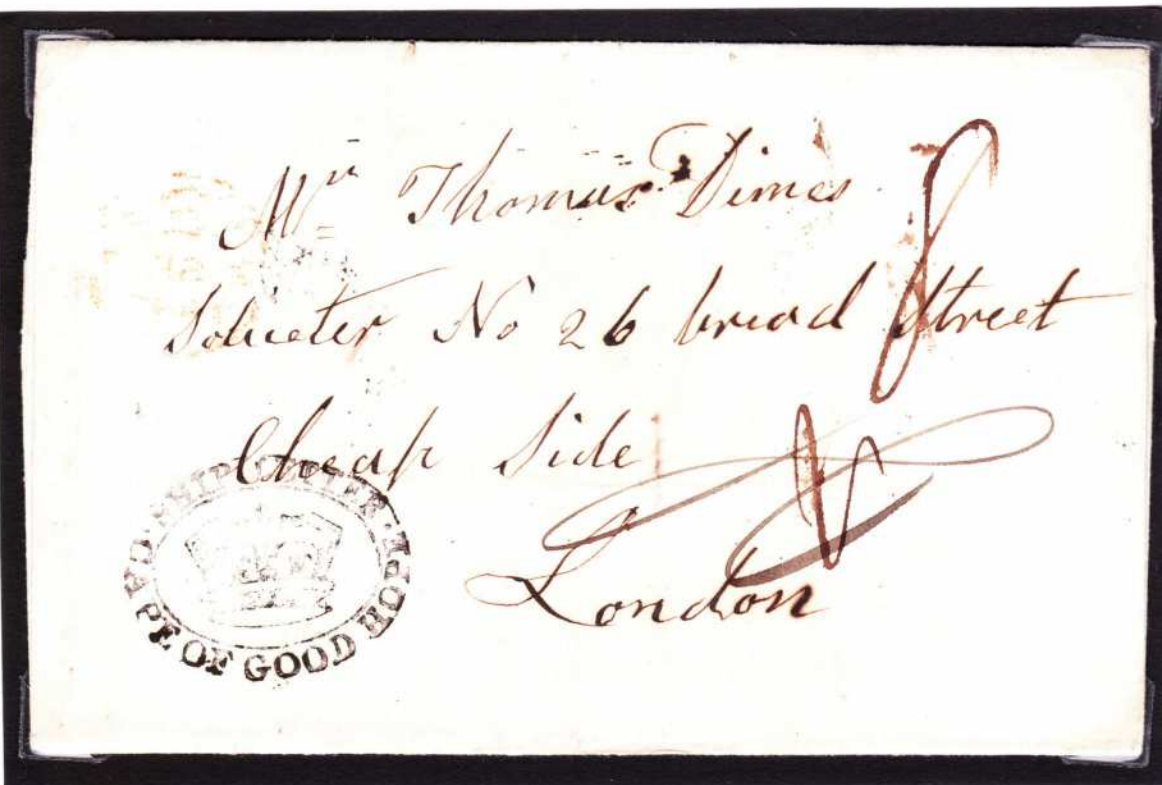 Mr Thomas Dimes
Soliceter No 26 broad Street
Cheap Side
London
8
SHIP LETTER
CAPE OF GOOD HOPE